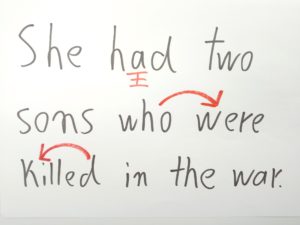 She had two
sons who were
killed in the war.